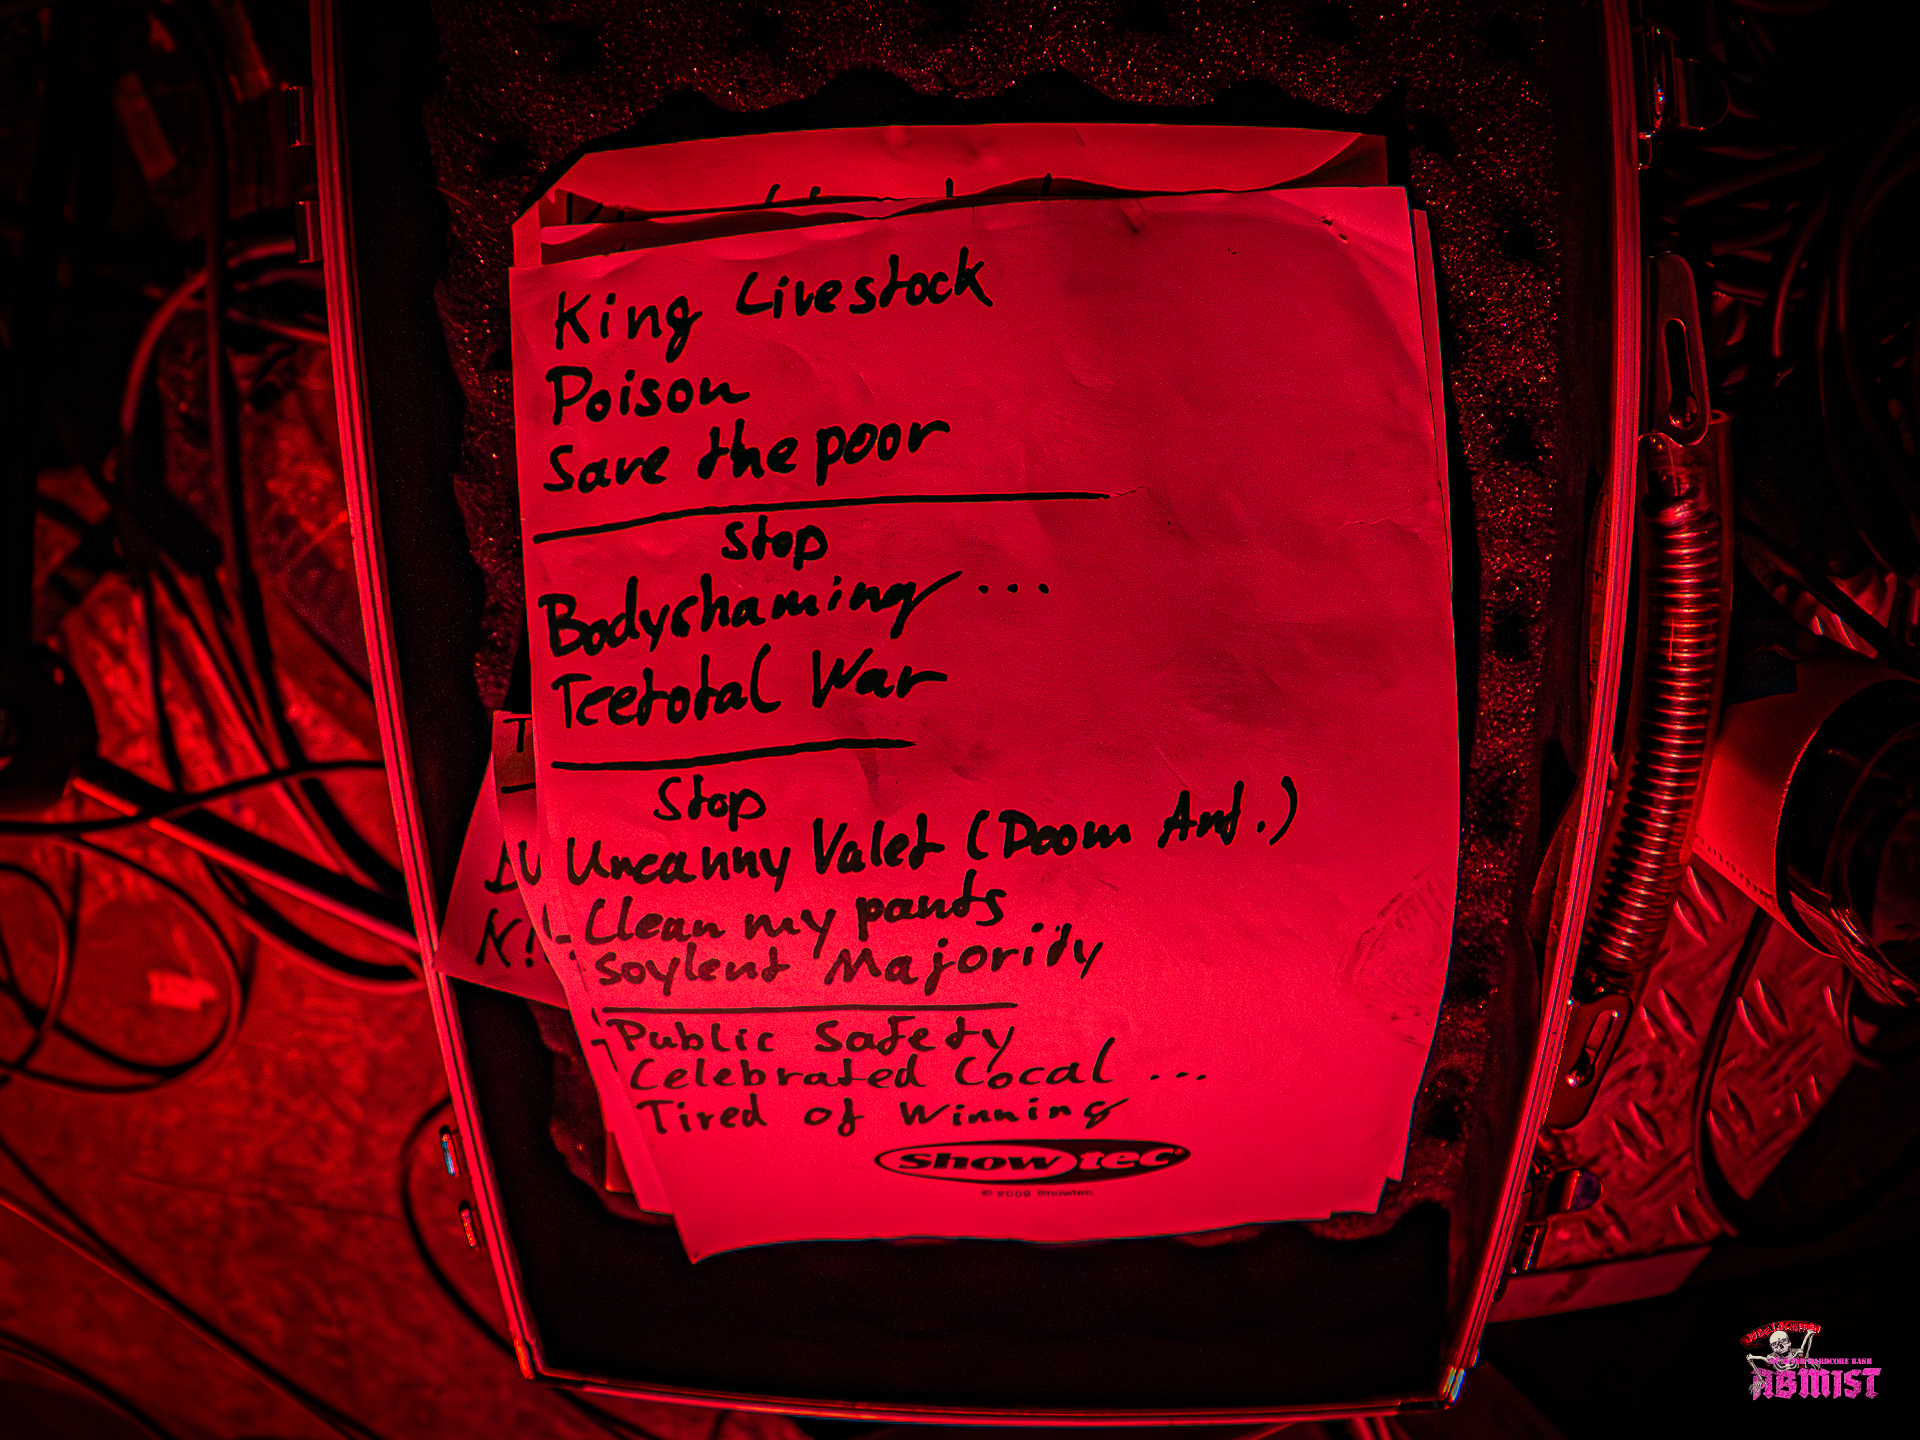 King Livestock
Poison
Save the poor
Stop
Bodyshaming ...
Teetotal War
Stop
Uncanny Valet (Doom Ant.)
Clean my pants
Soylent Majority
Public Safety
Celebrated Cocal ...
Tired of Winning
Showtec
© 2009 Showtec.
HARDCORE BASH
ABMIST